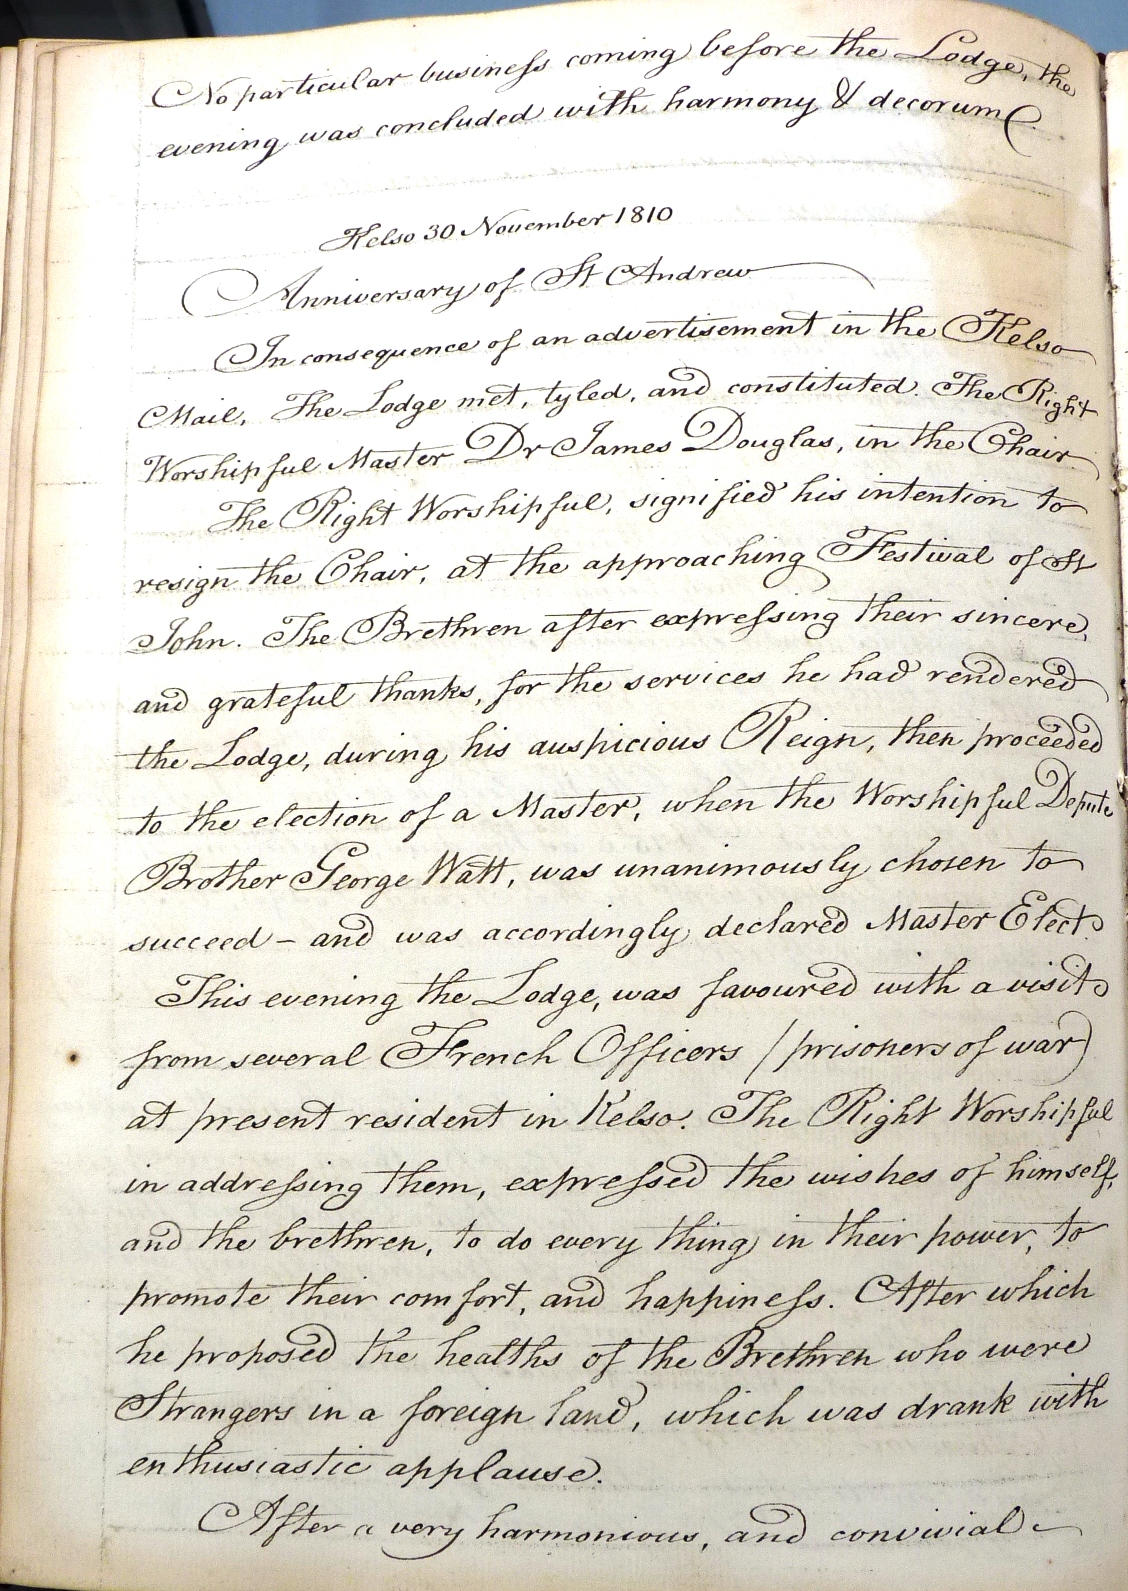 No particular business coming before the Lodge, the
evening was concluded with harmony & decorum
Kelso 30 November 1810
Anniversary of St Andrew
In consequence of an advertisement in the Kelso
Mail, The Lodge met, tyled, and constituted. The Right
Worshipful Master Dr James Douglas, in the Chair
The Right Worshipful, signified his intention to
resign the Chair, at the approaching Festival of St
John. The Brethren after expreſsing their sincere,
and grateful thanks, for the services he had rendered
the Lodge, during his auspicious Reign, then proceeded
to the election of a Master, when the Worshipful Depute
Brother George Watt, was unanimously chosen to
succeed – and was accordingly declared Master Elect.
This evening the Lodge, was favoured with a visit
from several French Officers (prisoners of war)
at present resident in Kelso. The Right Worshipful
in addreſsing them, expreſsed the wishes of himself,
and the brethren, to do every thing in their power, to
promote their comfort, and happineſs. After which
he proposed the healths of the Brethren who were
Strangers in a foreign land, which was drank with
enthusiastic applause.
After a very harmonious, and convivial